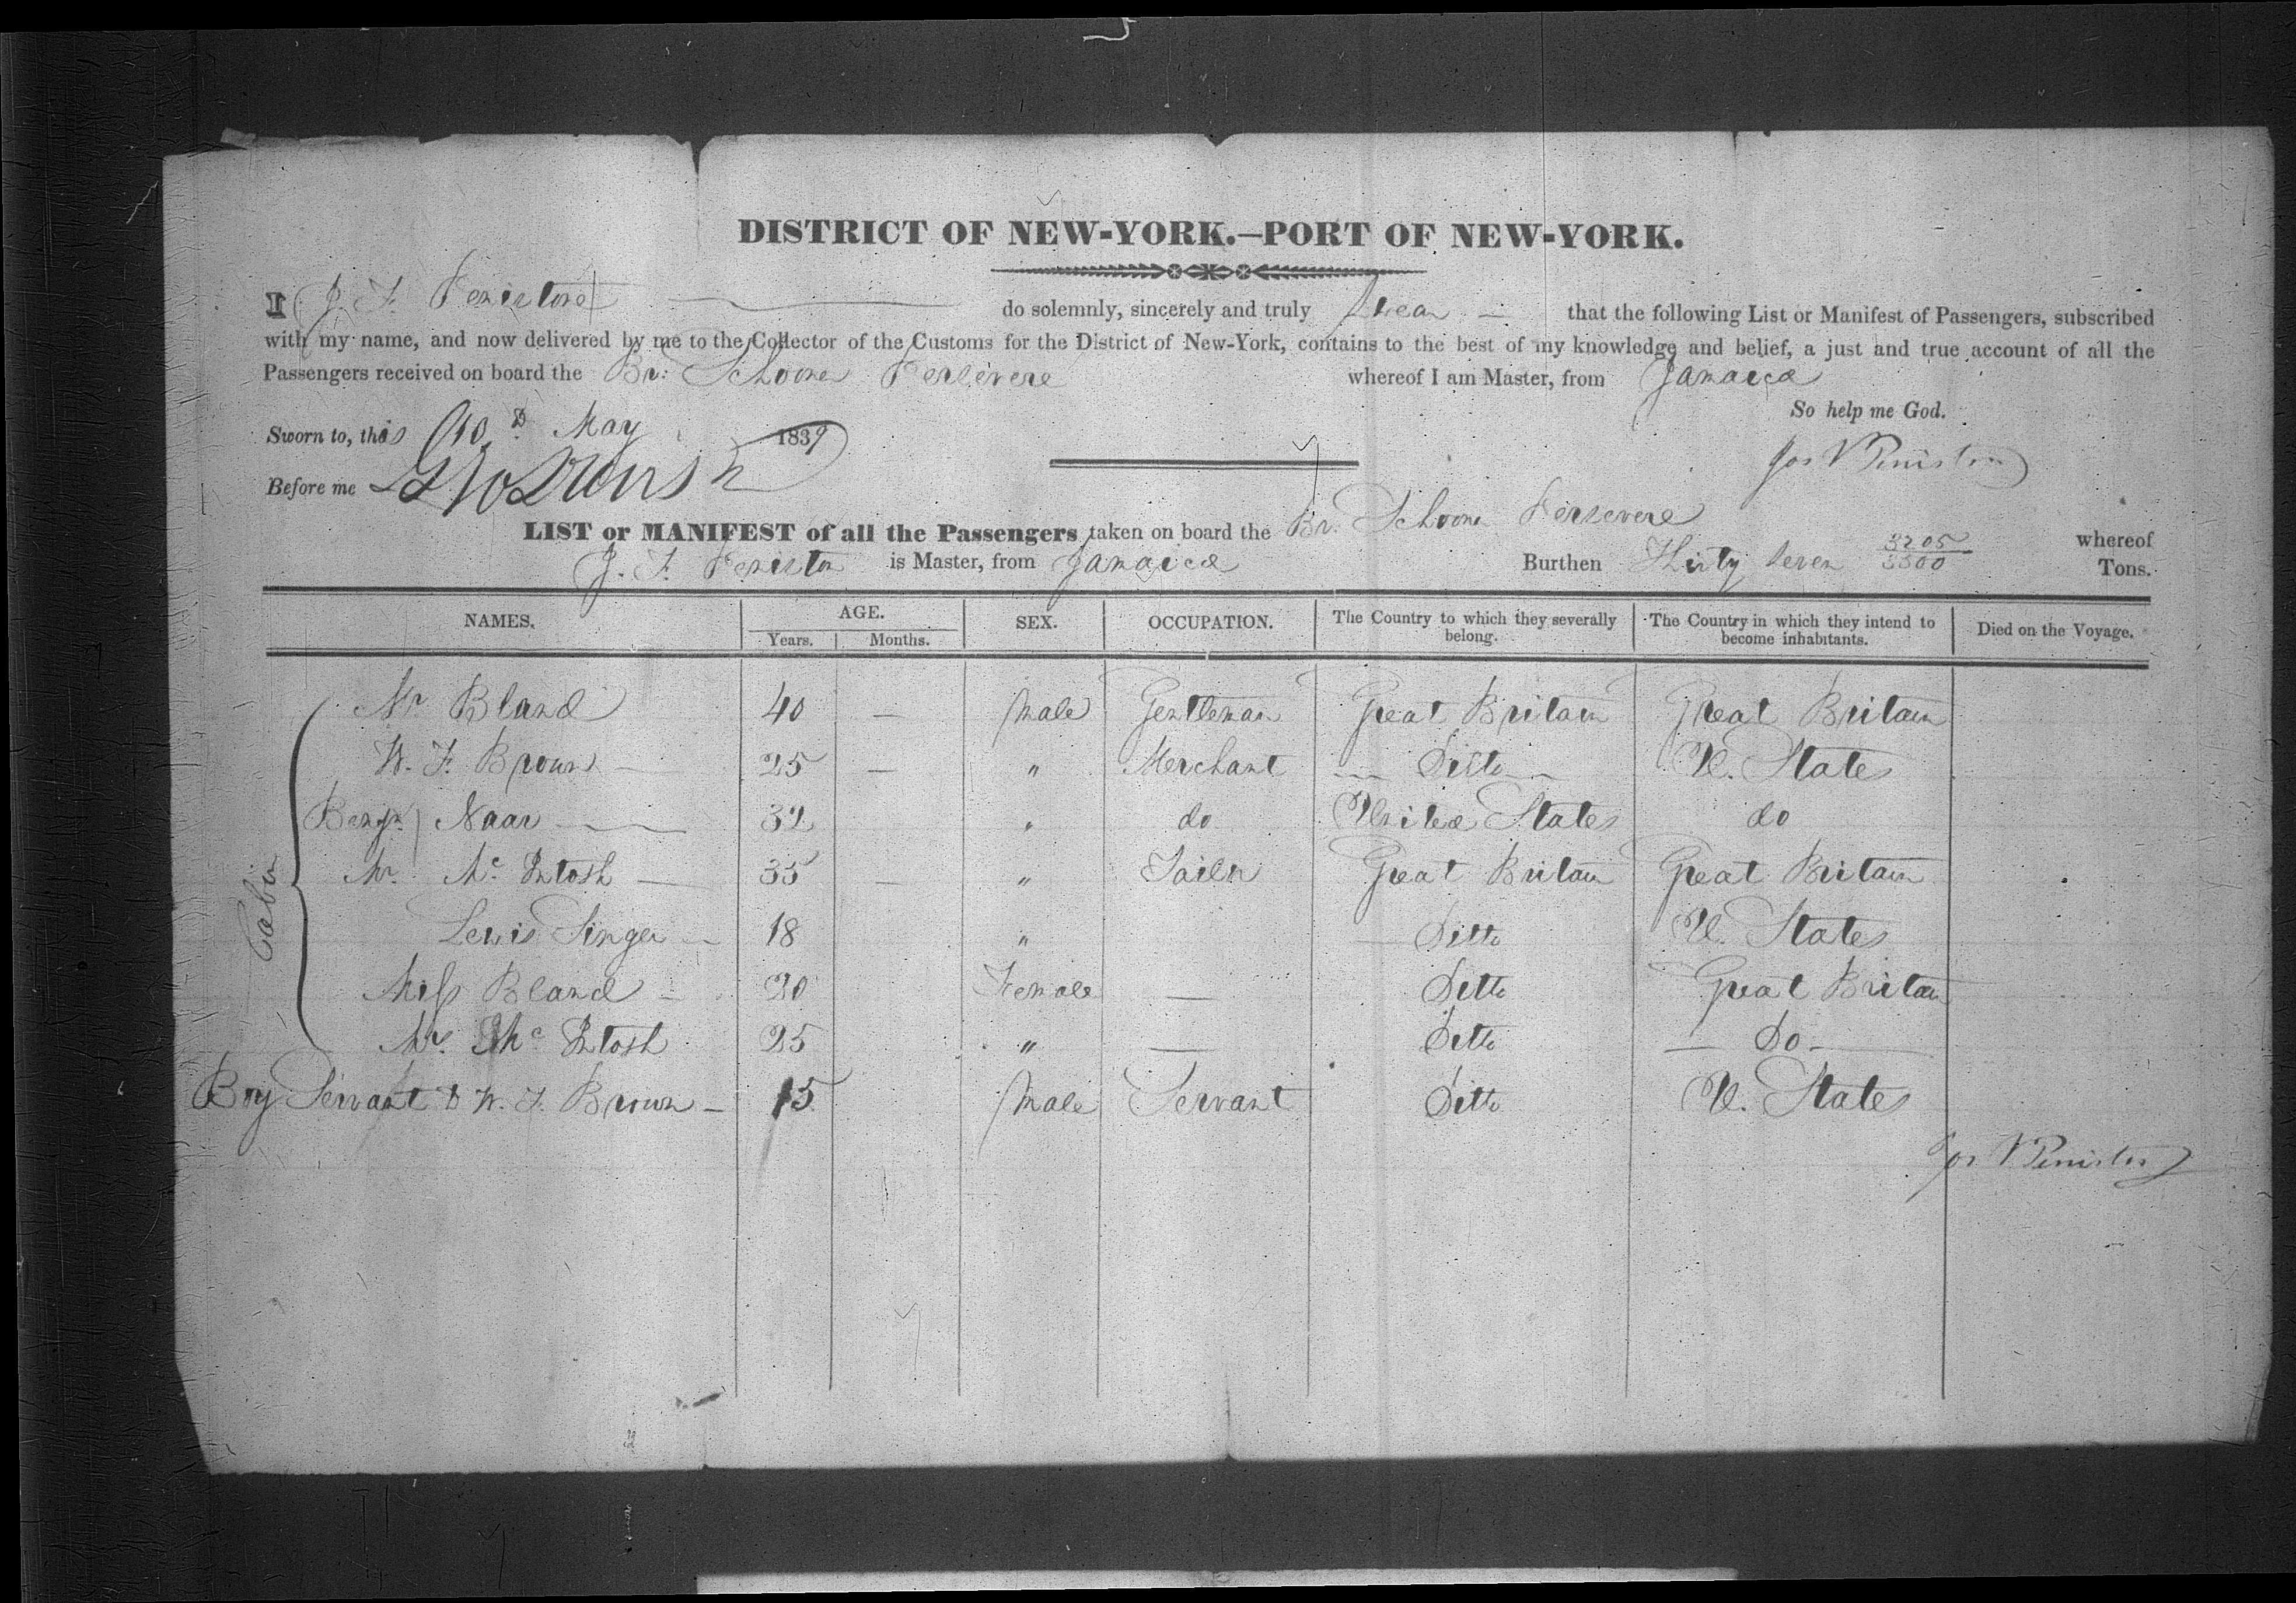 DISTRICT OF NEW-YORK.—PORT OF NEW-YORK.
I J. F. Peniston do solemnly, sincerely and truly Swear that the following List or Manifest of Passengers, subscribed
with my name, and now delivered by me to the Collector of the Customs for the District of New-York, contains to the best of my knowledge and belief, a just and true account of all the
Passengers received on board the Br. Schooner Persevere whereof I am Master, from Jamaica
So help me God.
Sworn to, this May 1839
Jas Peniston
Before me
LIST or MANIFEST of all the Passengers taken on board the Br. Schooner Persevere whereof
J. F. Peniston is Master, from Jamaica Burthen Thirty Seven 3205/3500 Tons.
NAMES. AGE. SEX. OCCUPATION. The Country to which they severally belong. The Country in which they intend to become inhabitants. Died on the Voyage.
Years. Months.
Cabin
Mr Bland 40 — Male Gentleman Great Britain Great Britain
W. F. Brown — 25 — " Merchant — Ditto — U. States
Benjn Naar — 32 " do United States do
Mr. Mc Intosh — 35 — " Great Britain Great Britain
Lewis Singer — 18 " Ditto U. States
Miss Bland — 20 Female — Ditto Great Britain
Mrs. Mc Intosh 25 " — Ditto — Do —
Boy Servant to W. F. Brown — 15 Male Servant Ditto U. States
Jas Peniston